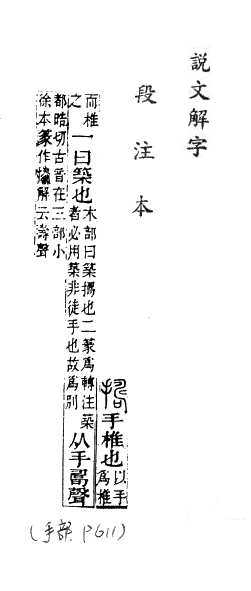 說文解字
段注本
手椎也以手
爲椎
而椎
之
一曰築也
木部曰築㨶也二篆爲轉注築
者必用築非徒手也故爲別
从手𠷎聲
都晧切古音在三部小
徐本篆作擣解云壽聲
(手部 P611)